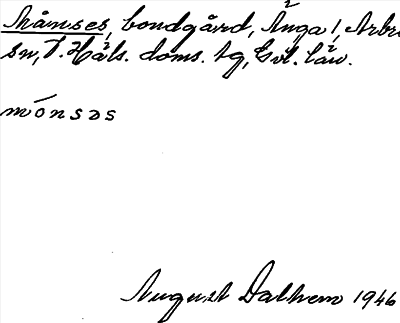 Månses, bondgård, Änga 1, Arbrå
sn, V. Häls. doms. tg, Gvl. län.
mónsəs
August Dalhem 1946